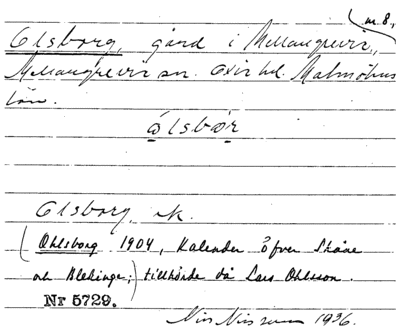 m. 8.
Olsborg, gård i Mellangrevie,
Mellangrevie sn. Oxie hd. Malmöhus
län.
ólsbǿr
Olsborg ek.
(Ohlsborg 1904, Kalender öfver Skåne
och Blekinge;) tillhörde då Lars Ohlsson.
Nr 5729.
Nils Nilsson 1936.